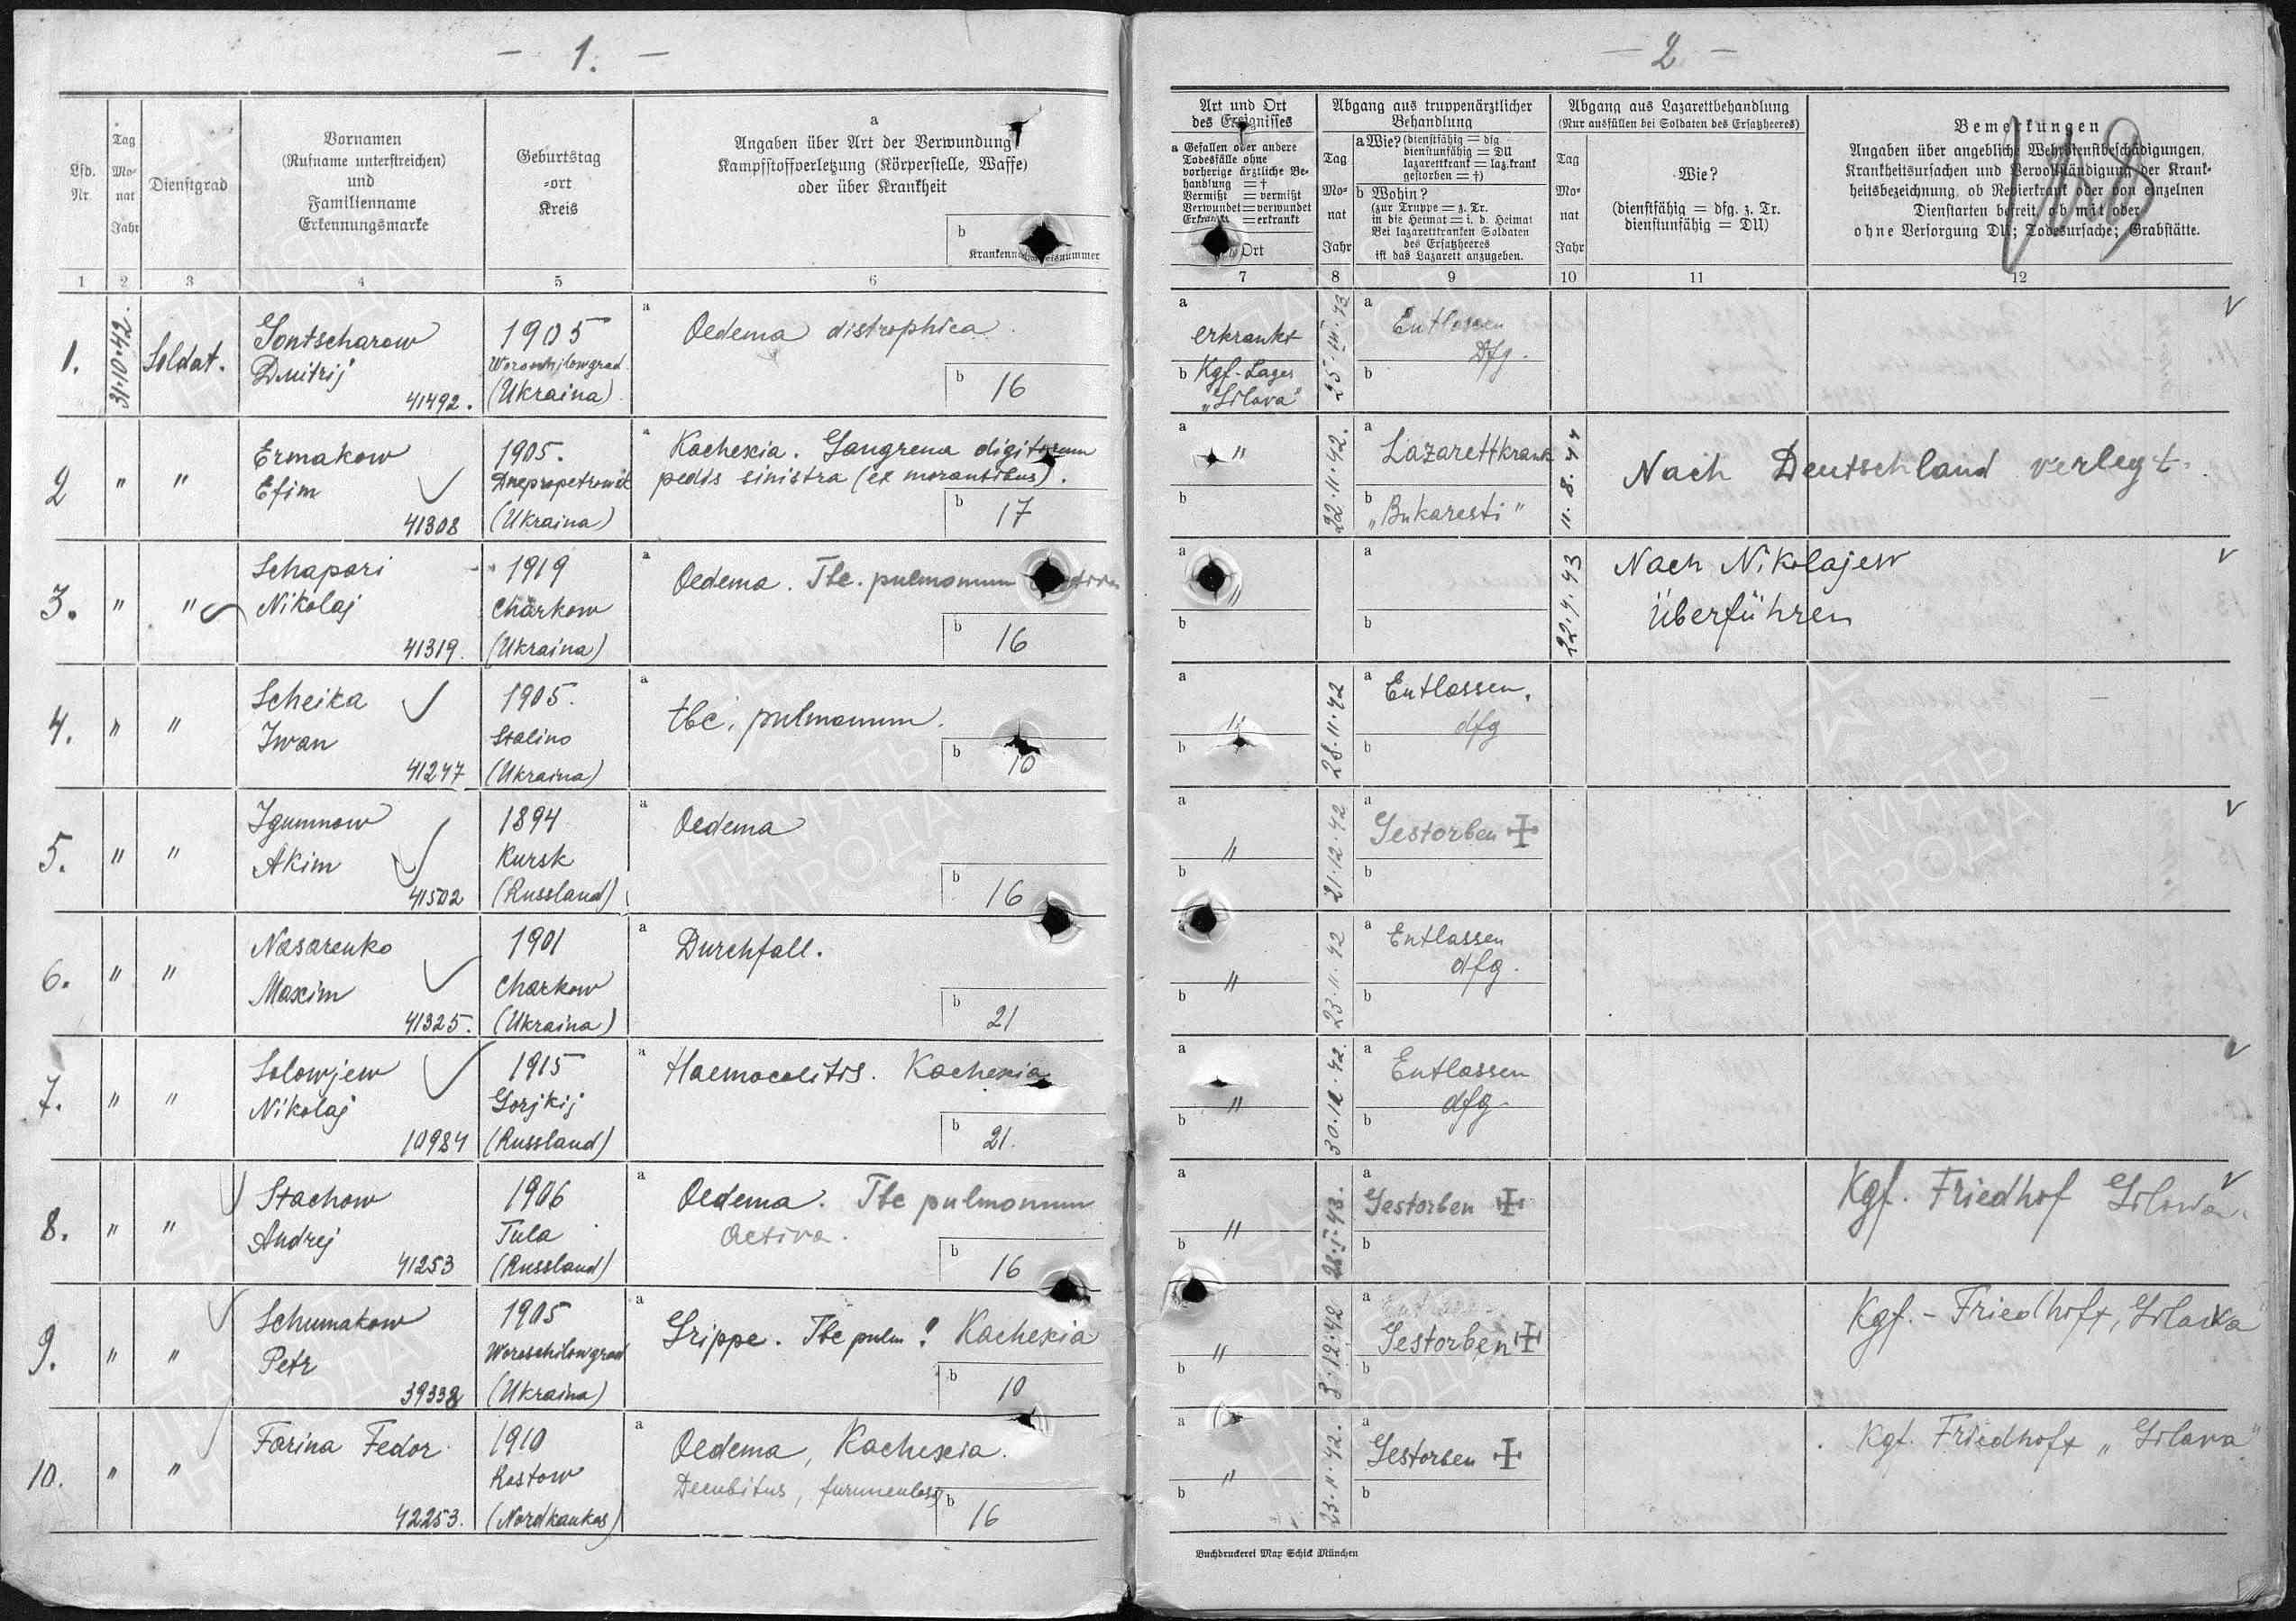 - 1. -
Lfd. Nr.
Tag Monat Jahr
Dienstgrad
Vornamen
(Rufname unterstreichen)
und
Familienname
Erkennungsmarke
Geburtstag
-ort
Kreis
a
Angaben über Art der Verwundung
Kampfstoffverletzung (Körperstelle, Waffe)
oder über Krankheit
b
1 2 3 4 5 6
1. 31.10.42. Soldat.
Gontscharow
Dmitrij
41492.
1905
Woroschilowgrad
(Ukraina)
a Oedema distrophica
b 16
2 " "
Ermakow
Efim
41308
1905.
Dnepropetrowsk
(Ukraina)
a Kachexia. Gangrena digitorum
pedis sinistra (ex morantibus).
b 17
3. " "
Schapari
Nikolaj
41319.
1919
Charkow
(Ukraina)
a Oedema. Tbc. pulmonum
b 16
4. " "
Scheika
Iwan
41247
1905.
Stalino
(Ukraina)
a tbc. pulmonum.
b 10
5. " "
Igumnow
Akim
41502
1894
Kursk
(Russland)
a Oedema
b 16
6. " "
Nasarenko
Maxim
41325.
1901
Charkow
(Ukraina)
a Durchfall.
b 21
7. " "
Solowjew
Nikolaj
10984
1915
Gorjkij
(Russland)
a Haemocolitis. Kachexia
b 21.
8. " "
Stachow
Andrej
41253
1906
Tula
(Russland)
a Oedema. Tbc pulmonum
activa.
b 16
9. " "
Schumakow
Petr
39338
1905
Woroschilowgrad
(Ukraina)
a Grippe. Tbc pulm? Kachexia
b 10
10. " "
Farina Fedor
42253.
1910
Rostow
(Nordkaukas)
a Oedema, Kachexia.
Decubitus,
b 16
- 2 -
Art und Ort
des Ereignisses
a Gefallen oder andere
Todesfälle ohne
vorherige ärztliche Be-
handlung = †
Vermißt = vermißt
Verwundet = verwundet
Erkrankt = erkrankt
Ort
Abgang aus truppenärztlicher
Behandlung
Tag Monat Jahr
a Wie? (dienstfähig = dfg
dienstunfähig = DU
lazarettkrank = laz.krank
gestorben = †)
b Wohin?
(zur Truppe = z. Tr.
in die Heimat = i. d. Heimat
Bei lazarettkranken Soldaten
des Ersatzheeres
ist das Lazarett anzugeben.
Abgang aus Lazarettbehandlung
(Nur ausfüllen bei Soldaten des Ersatzheeres)
Tag Monat Jahr
Wie?
(dienstfähig = dfg. z. Tr.
dienstunfähig = DU)
Bemerkungen
Angaben über angebliche Wehrdienstbeschädigungen,
Krankheitsursachen und Vervollständigung der Krank-
heitsbezeichnung, ob Revierkrank oder von einzelnen
Dienstarten befreit, ob mit oder
ohne Versorgung DU; Todesursache; Grabstätte.
7 8 9 10 11 12
a erkrankt
b Kgf-Lager
"Gilava"
25.III.43
a Entlassen
Dfg.
b
a "
b
22.11.42.
a Lazarettkrank
b "Bukaresti"
11.8.44
Nach Deutschland verlegt.
a "
b
a
b
22.4.43
Nach Nikolajew
Überführen
a "
b
28.11.42
a Entlassen,
dfg
b
a "
b
21.12.42
a Gestorben ✝
b
a "
b
23.11.42
a Entlassen
dfg.
b
a "
b
a Entlassen
dfg.
b
a "
b
a Gestorben ✝
b
Kgf. Friedhof Gilowa.
a "
b
3.12.42
a
Gestorben ✝
b
Kgf.-Friedhoft,
a "
b
23.11.42.
a Gestorben ✝
b
Kgf. Friedhoft "Gilava"
Buchdruckerei Max Schick München
ПАМЯТЬ
НАРОДА